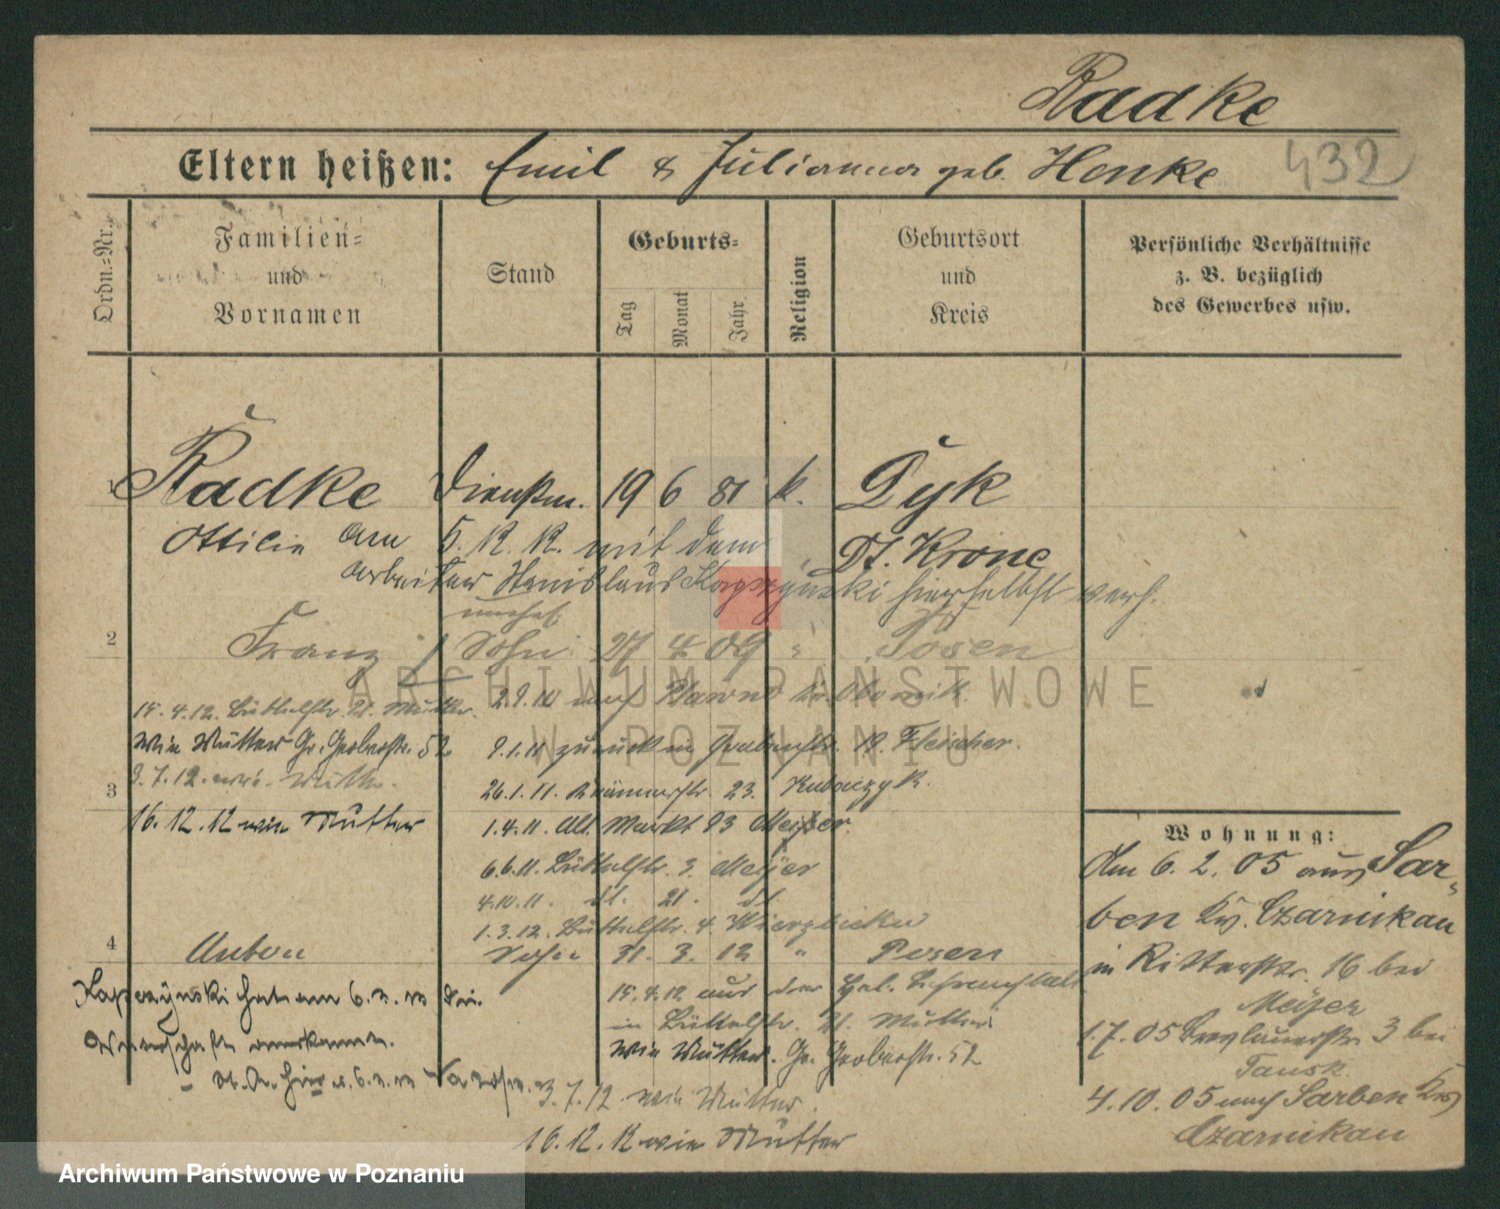 Radke
Eltern heißen: Emil & Julianna geb. Henke
432
Ordn.-Nr.
Familien-
und
Vornamen
Stand
Geburts-
Tag
Monat
Jahr
Religion
Geburtsort
und
Kreis
Persönliche Verhältnisse
z. B. bezüglich
des Gewerbes usw.
1 Radke Dienstm. 19 6 81 k. Dyk
Ottilie Dt. Krone
Am 5. 12. 12. mit dem
Arbeiter Stanislaus hierselbst verh.
unehel.
2 Franz Sohn 27 4 09 " Posen
15.4.12. 21. Mutter
2.9.10 nach
wie Mutter Gr. Gerberstr. 52
9.1.11 zurück 19 Fleischer.
3.7.12. wie Mutter.
3
26.1.11. 23.
16.12.12 wie Mutter
1.4.11. Alt. Markt 93
6.6.11. 3. Meijer
4.10.11. dt. 21. dt
1.3.12. 4.
4 Anton Sohn 31. 3. 12 " Posen
hat am 6.3.13 die
15.4.12 aus der
anerkannt.
in 21. Mutter
wie Mutter. Gr. Gerberstr. 52
3.7.12 wie Mutter.
16.12.12 wie Mutter
Wohnung:
Am 6. 2. 05 aus Sar-
ben Krs. Czarnikau
in Ritterstr. 16 bei
Meijer
1.7.05 Breslauerstr. 3 bei
Tausk.
4.10.05 nach Sarben Krs
Czarnikau
ARCHIWUM PAŃSTWOWE
W POZNANIU
Archiwum Państwowe w Poznaniu